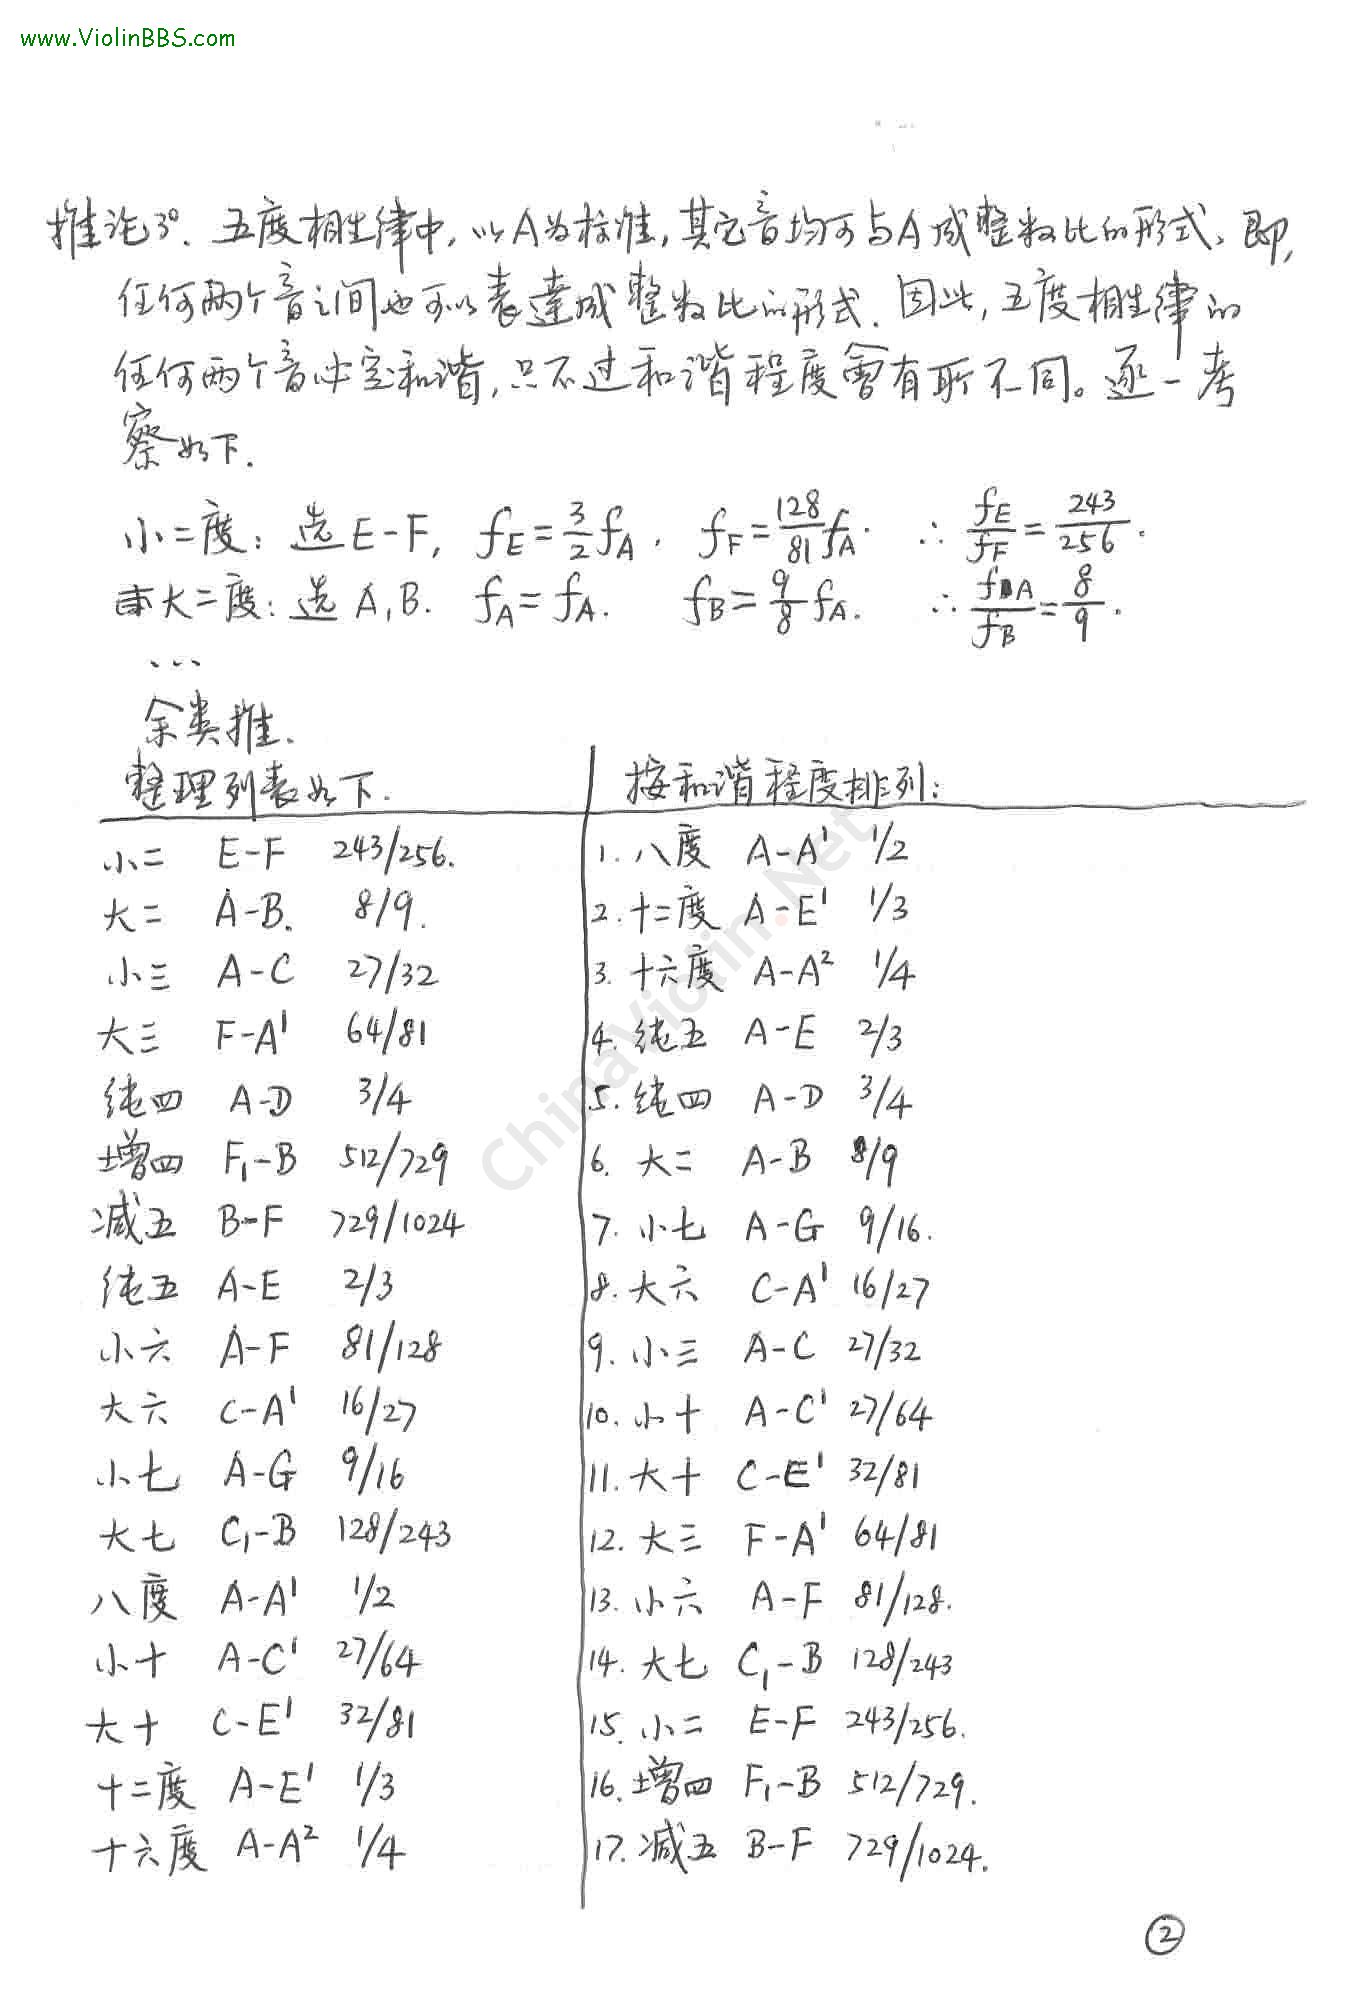 www.ViolinBBS.com
推论3°. 五度相生律中, 以A为标准, 其它音均可与A成整数比的形式. 即,
任何两个音之间也可以表达成整数比的形式. 因此, 五度相生律的
任何两个音必定和谐, 只不过和谐程度会有所不同。逐一考
察如下.
小二度: 选E-F, fE=3/2 fA, fF=128/81 fA. ∴ fE/fF=243/256.
大二度: 选A,B. fA=fA. fB=9/8 fA. ∴ fA/fB=8/9.
...
余类推.
整理列表如下.
小二 E-F 243/256.
大二 A-B. 8/9.
小三 A-C 27/32
大三 F-A¹ 64/81
纯四 A-D 3/4
增四 F₁-B 512/729
减五 B-F 729/1024
纯五 A-E 2/3
小六 A-F 81/128
大六 C-A¹ 16/27
小七 A-G 9/16
大七 C₁-B 128/243
八度 A-A¹ 1/2
小十 A-C¹ 27/64
大十 C-E¹ 32/81
十二度 A-E¹ 1/3
十六度 A-A² 1/4
按和谐程度排列:
1. 八度 A-A¹ 1/2
2. 十二度 A-E¹ 1/3
3. 十六度 A-A² 1/4
4. 纯五 A-E 2/3
5. 纯四 A-D 3/4
6. 大二 A-B 8/9
7. 小七 A-G 9/16.
8. 大六 C-A¹ 16/27
9. 小三 A-C 27/32
10. 小十 A-C¹ 27/64
11. 大十 C-E¹ 32/81
12. 大三 F-A¹ 64/81
13. 小六 A-F 81/128.
14. 大七 C₁-B 128/243
15. 小二 E-F 243/256.
16. 增四 F₁-B 512/729.
17. 减五 B-F 729/1024.
ChinaViolin.Net
②